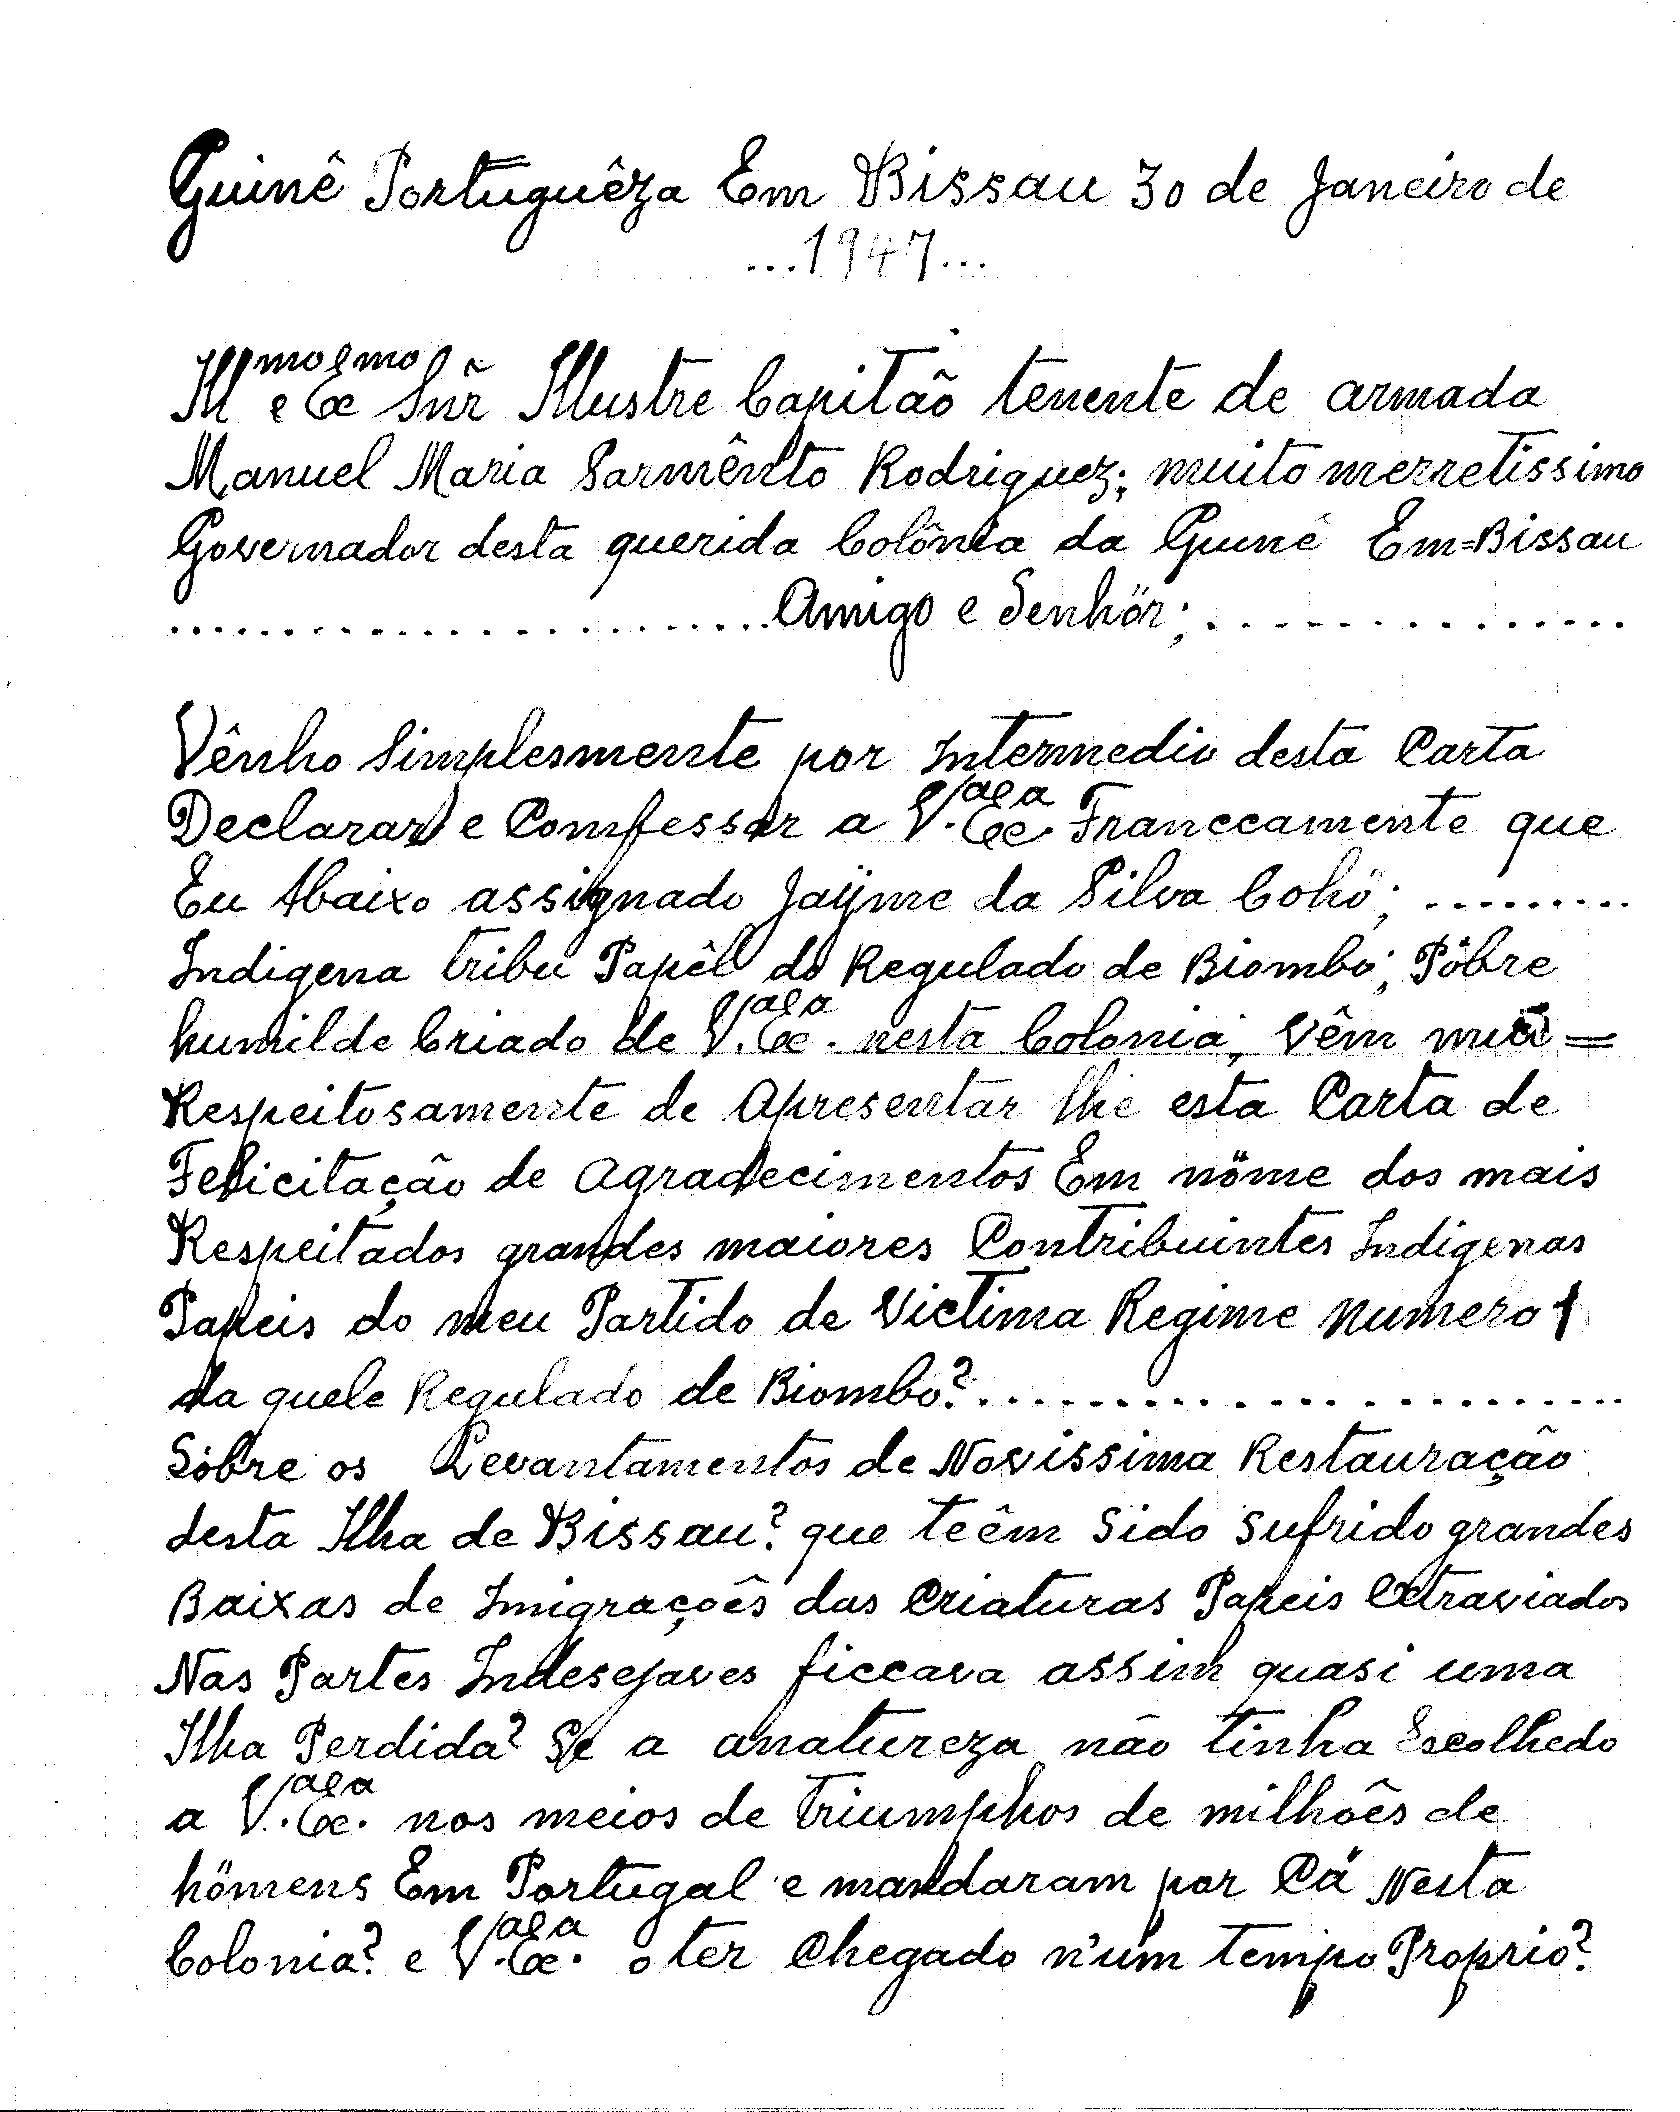 Guinê Portuguêza Em Bissau 30 de Janeiro de
...1947...
Ill^mo e Ex^mo Snr̃ Illustre Capitão tenente de armada
Manuel Maria Sarmênto Rodriguez; muito merretissimo
Governador desta querida Colônia da Guinê Em=Bissau
........................Amigo e Senhör;................
Vênho Simplesmente por Intermedio desta Carta
Declarar e Comfessar a V.^a Ex.^a Franccamente que
Eu Abaixo assignado Jaÿme da Silva Cohö; .........
Indigena tribu Papêl do Regulado de Biombo; Pöbre
humilde Criado de V.^a Ex.^a nesta Colonia; Vêm mui =
Respeitosamente de Apresentar lhe esta Carta de
Felicitação de Agradecimentos Em nöme dos mais
Respeitados grandes maiores Contribuintes Indigenas
Papeis do meu Partido de Victima Regime numero 1
da quele Regulado de Biombo?.......................
Sóbre os Levantamentos de Novissima Restauração
desta Ilha de Bissau? que teêm Sido Sufrido grandes
Baixas de Imigraçoês das Criaturas Papeis Extraviados
Nas Partes Indesejaves ficcava assim quasi uma
Ilha Perdida? Se a anatureza não tinha Escolhedo
a V.^a Ex.^a nos meios de Triumphos de milhoês de
hömens Em Portugal e mandaram por Cá Nesta
Colonia? e V.^a Ex.^a o ter Chegado n'um tempo Proprio?